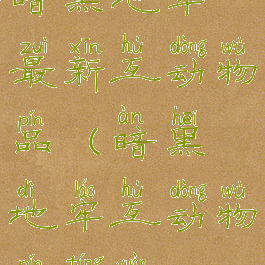 暗黑地牢
zuì xīn hù dòng wù
最新互动物
pǐn àn hēi
品(暗黑
dì láo hù dòng wù
地牢互动物